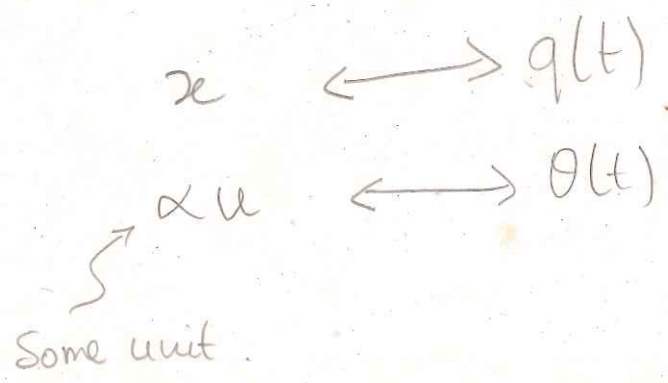 x ⟷ q(t)
αu ⟷ θ(t)
Some unit.